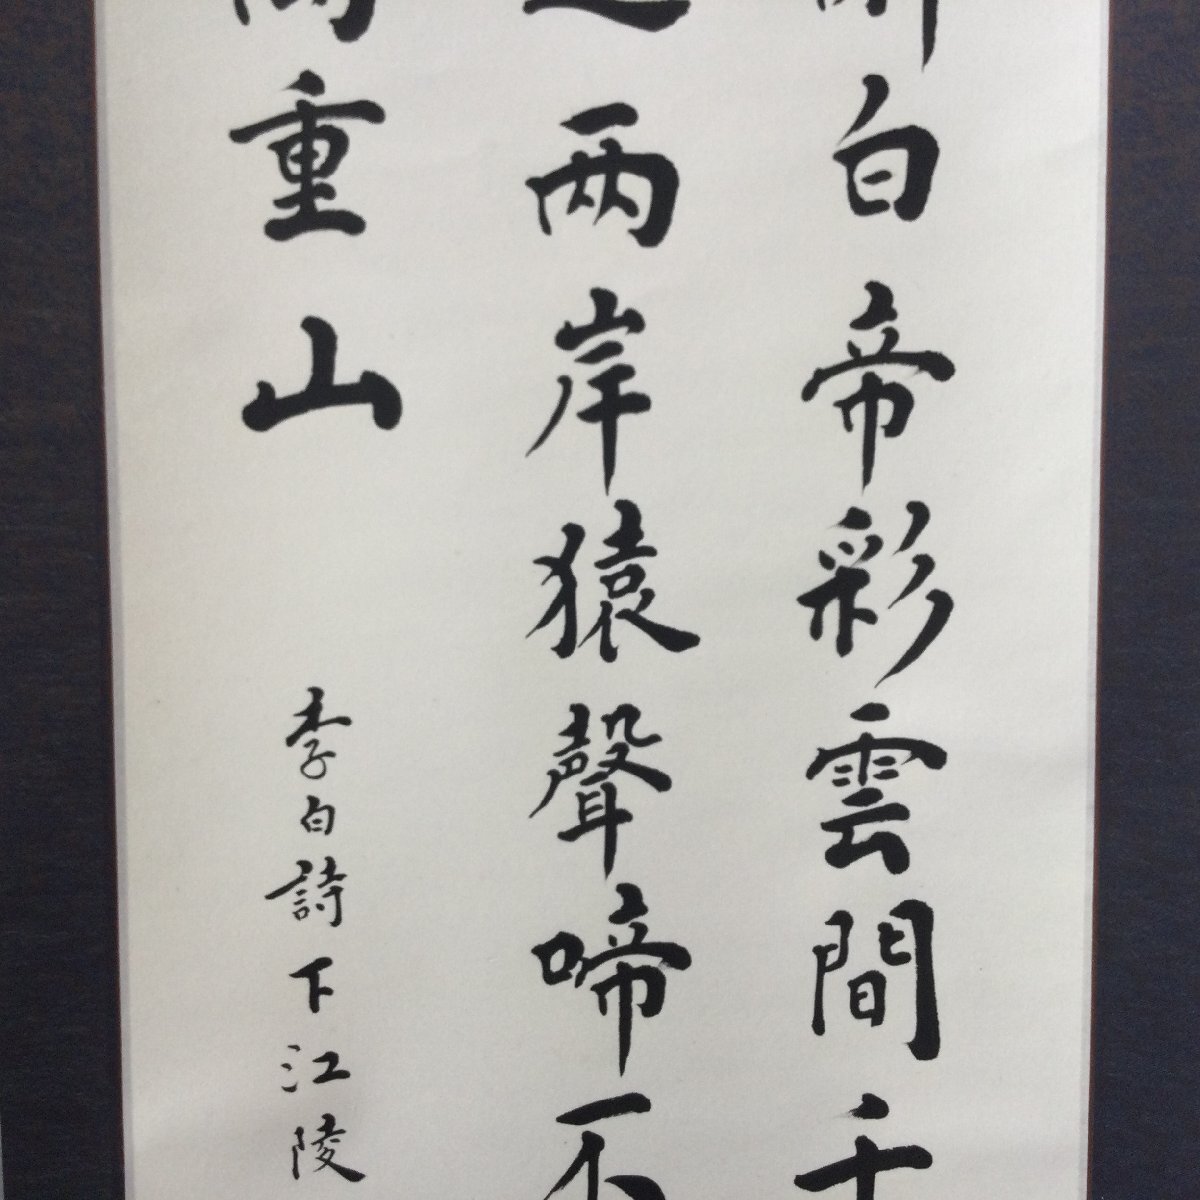 白帝彩雲間千
兩岸猿聲啼不
重山
李白詩下江陵